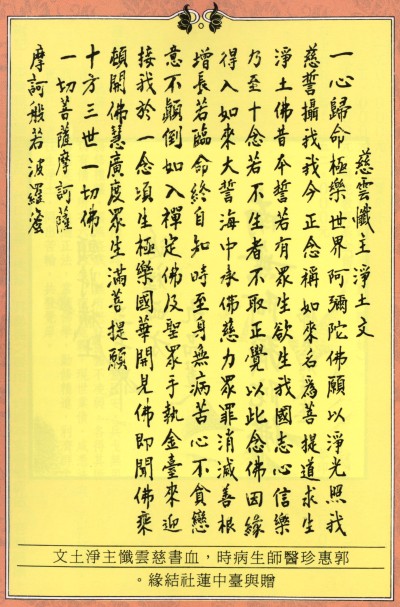 慈雲懺主淨土文
一心歸命極樂世界阿彌陀佛願以淨光照我
慈誓攝我我今正念稱如來名為菩提道求生
淨土佛昔本誓若有眾生欲生我國志心信樂
乃至十念若不生者不取正覺以此念佛因緣
得入如來大誓海中承佛慈力眾罪消滅善根
增長若臨命終自知時至身無病苦心不貪戀
意不顛倒如入禪定佛及聖眾手執金臺來迎
接我於一念頃生極樂國華開見佛即聞佛乘
頓開佛慧廣度眾生滿菩提願
十方三世一切佛
一切菩薩摩訶薩
摩訶般若波羅蜜
郭惠珍醫師生病時，血書慈雲懺主淨土文
贈與臺中蓮社結緣。